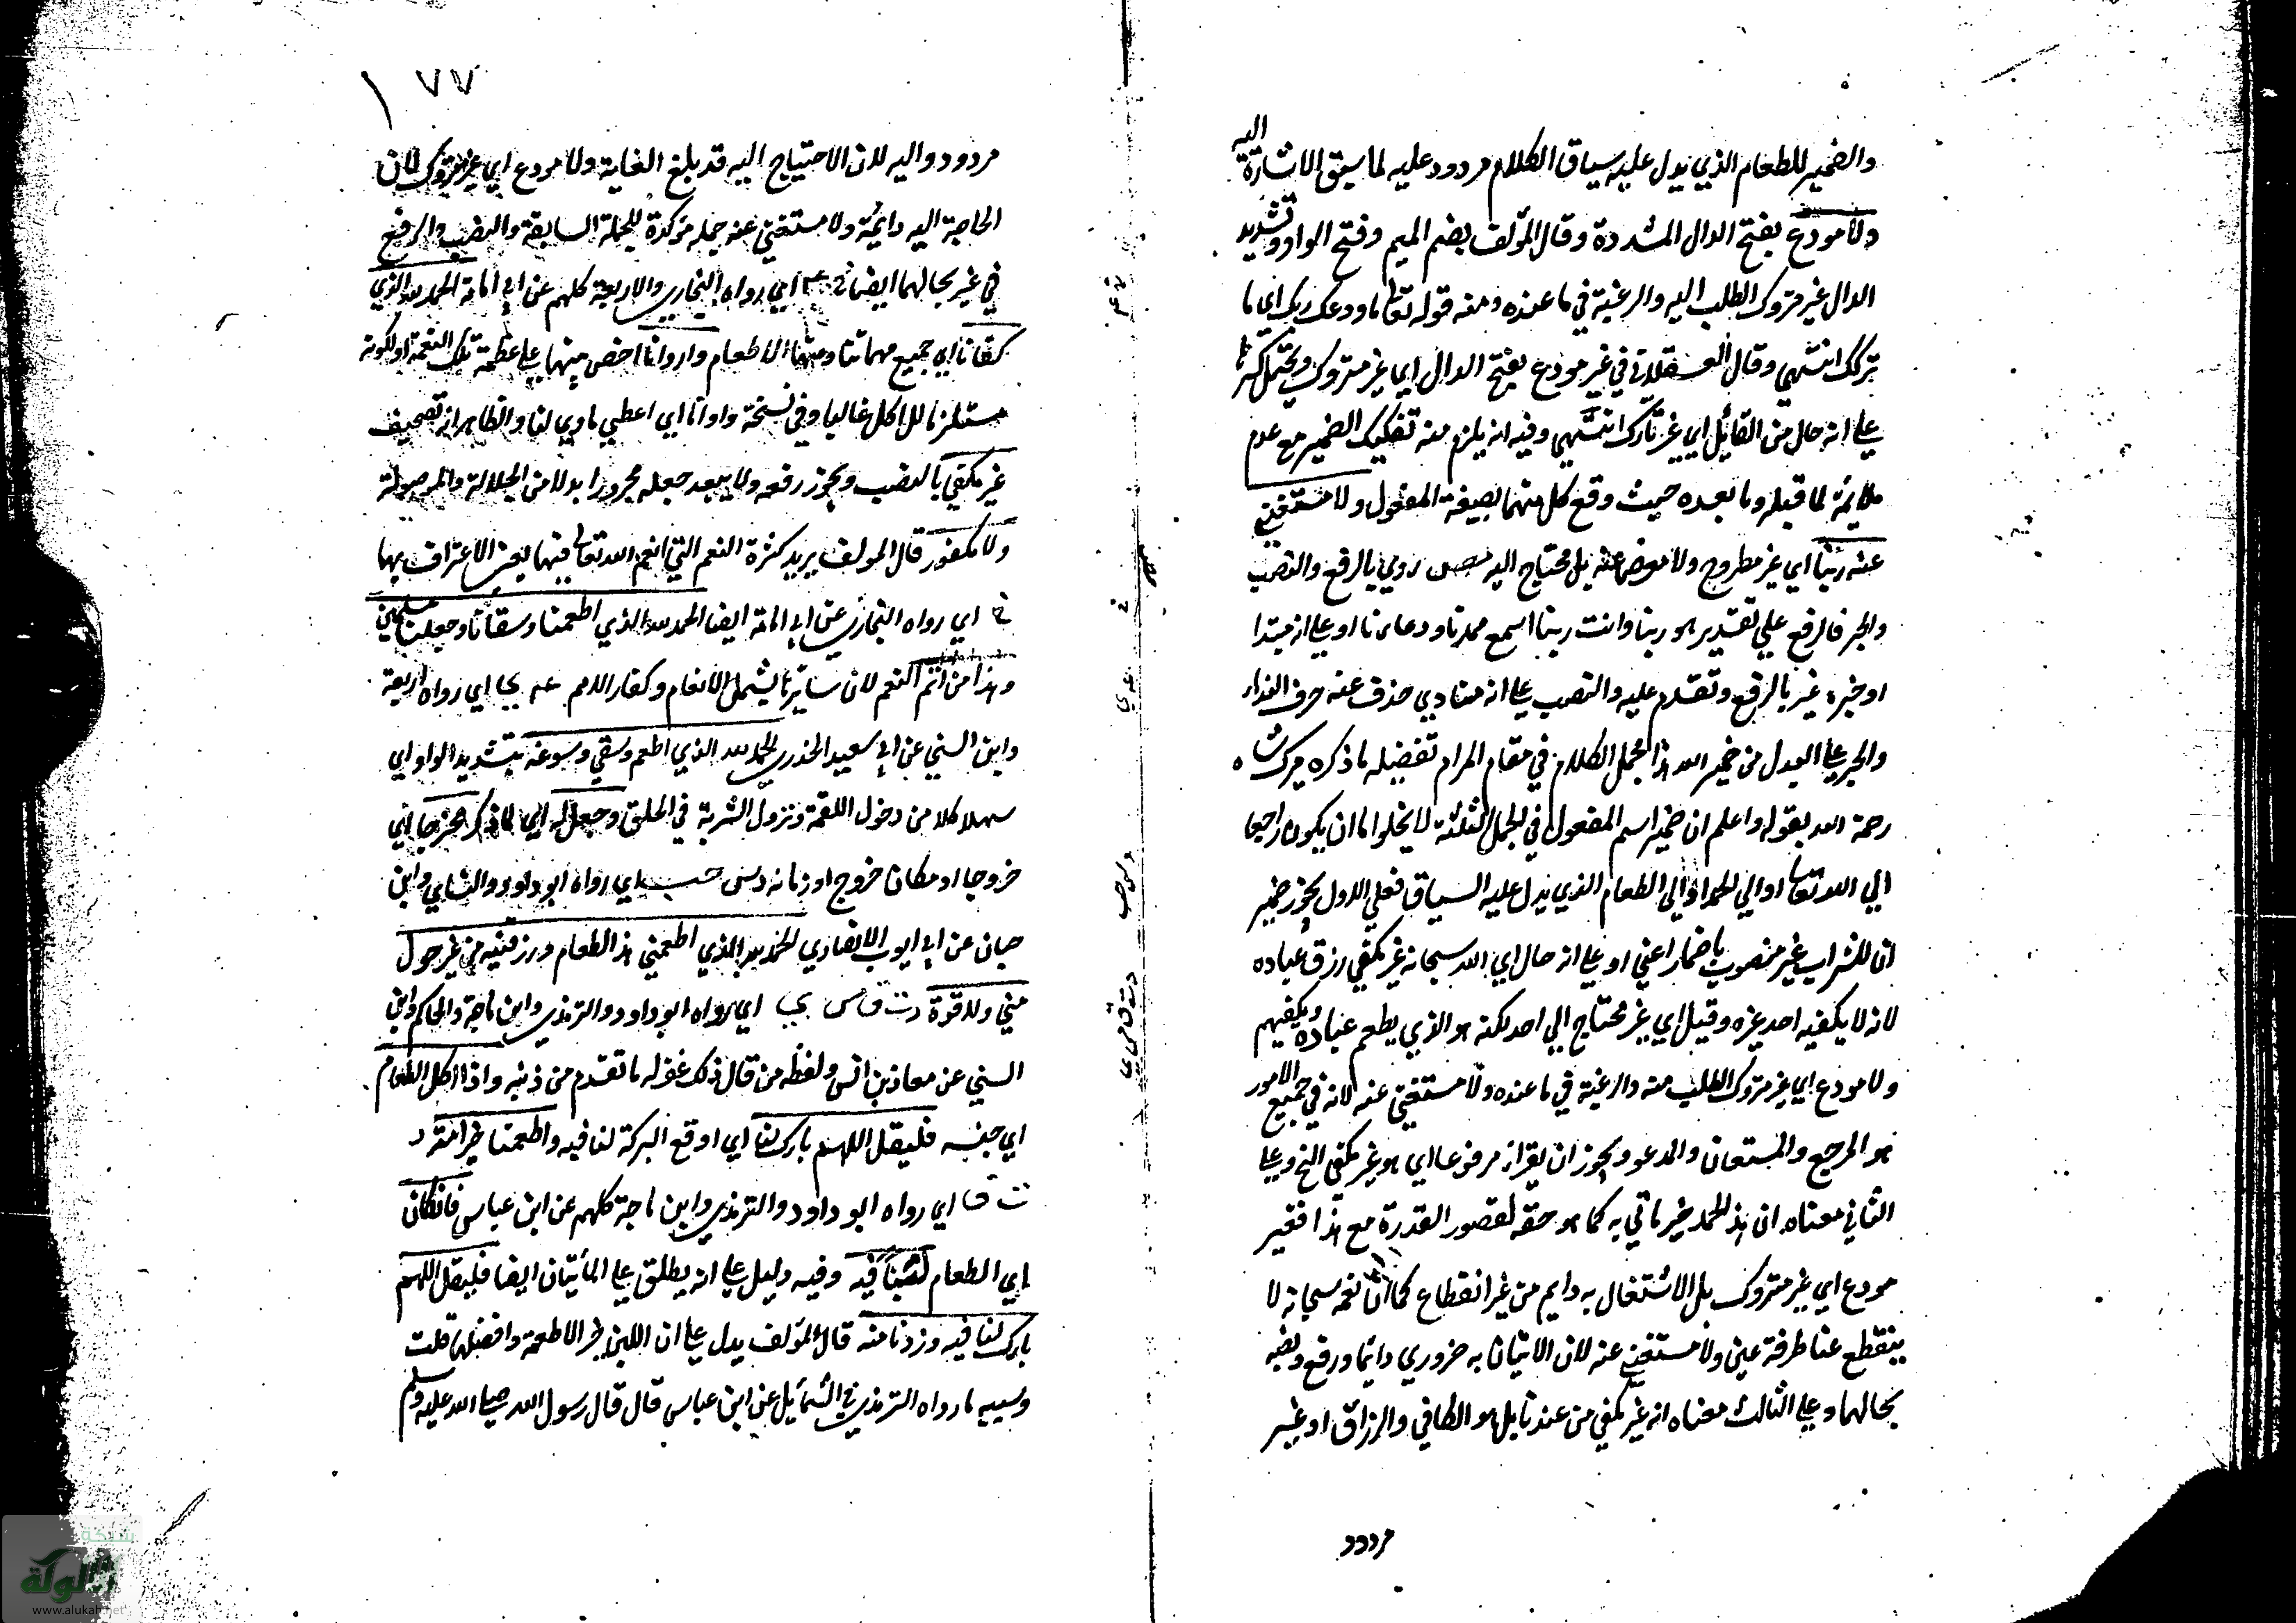 والضمير للطعام الذي يدل عليه سياق الكلام مردود عليه لما سبق الاشارة اليه
ولا مودع بفتح الدال المشددة وقال المؤلف بضم الميم وفتح الواو وتشديد
الدال غير متروك الطلب اليه والرغبة في ما عنده ومنه قوله تعالى ما ودعك ربك اي ما
تركك انتهى وقال العسقلاني في غير مودع بفتح الدال اي غير متروك ويحتمل كسرها
على انه حال من القائل اي غير تارك انتهى وفيه انه يلزم منه تفكيك الضمير مع عدم
ملايمة لما قبله وما بعده حيث وقع كل منهما بصيغة المفعول ولا مستغنى
عنه ربنا اي غير مطروح ولا معوض عنه بل محتاج اليه روي بالرفع والنصب
والجر فالرفع على تقدير هو ربنا وانت ربنا اسمع حمدنا ودعاءنا او على انه مبتدا
او خبره غير بالرفع وتقدم عليه والنصب على انه منادى حذف عنه حرف النداء
والجر على البدل من ضمير الله هذا مجمل الكلام في مقام المرام تفضيله ما ذكره ميرك شاه
رحمة الله بقوله واعلم ان ضمير اسم المفعول في الجمل الثلثة لا يخلوا اما ان يكون راجعا
الى الله تعالى او الى الحمد او الى الطعام الذي يدل عليه السياق فعلى الاول يجوز ضمير
غير منصوب باضمار اعني او على انه حال اي الله سبحانه غير مكفي رزق عباده
لانه لا يكفيه احد غيره وقيل اي غير محتاج الى احد لكنه هو الذي يطعم عباده ويكفيهم
ولا مودع اي غير متروك الطلب منه والرغبة في ما عنده ولا مستغنى عنه لانه في جميع الامور
هو المرجع والمستعان والمدعو ويجوز ان يقرا مرفوعا اي هو غير مكفي الخ وعلى
الثاني معناه ان هذا الحمد غير ماتي به كما هو حقه لقصور القدرة مع هذا فغير
مودع اي غير متروك بل الاشتغال به دايم من غير انقطاع كما ان نعمه سبحانه لا
ينقطع عنا طرفة عين ولا مستغنى عنه لان الاتيان به ضروري دائما ورفع ونصبه
بحالهما وعلى الثالث معناه انه غير مكفي من عندنا بل هو الكافي والرزاق او غير
مردود
١٧٧
مردود واليه لان الاحتياج اليه قد بلغ الغاية ولا مودع اي غير متروك لان
الحاجة اليه دائمة ولا مستغنى عنه جملة مؤكدة للجملة السابقة والنصب والرفع
في غير بحالهما ايضا خ عه اي رواه البخاري والاربعة كلهم عن ابي امامة الحمد لله الذي
كفانا اي جميع مهماتنا ومنها الاطعام واروانا اخص منها على عظمة تلك النعمة او لكونه
مستلزما للاكل غالبا وفي نسخة واوانا اي اعطى ماوى لنا والظاهر انه تصحيف
غير مكفي بالنصب ويجوز رفعه ولا يبعد جعله مجرورا بدلا من الجلالة والموصولة
ولا مكفور قال المولف يريد كثرة النعم التي انعم الله تعالى فيها يعني الاعتراف بها
خ اي رواه البخاري عن ابي امامة ايضا الحمد لله الذي اطعمنا وسقانا وجعلنا مسلمين
وهذا من اتم النعم لان سايرها يشمل الانعام وكفار الامم عه ي اي رواه اربعة
وابن السني عن ابي سعيد الخدري الحمد لله الذي اطعم وسقى وسوغه بتشديد الواو اي
سهل كلا من دخول اللقمة ونزول الشربة في الحلق وجعل له اي لما ذكر مخرجا اي
خروجا او مكان خروج او زمانه د س حب اي رواه ابو داود والنسائي وابن
حبان عن ابي ايوب الانصاري الحمد لله الذي اطعمني هذا الطعام ورزقنيه من غير حول
مني ولا قوة د ت ق مس ي اي رواه ابو داود والترمذي وابن ماجة والحاكم وابن
السني عن معاذ بن انس ولفظه من قال ذلك غفر له ما تقدم من ذنبه واذا اكل الطعام
اي جنسه فليقل اللهم بارك لنا اي اوقع البركة لنا فيه واطعمنا خيرا منه د
ت ق اي رواه ابو داود والترمذي وابن ماجة كلهم عن ابن عباس فان كان
اي الطعام لبنا فيه وفيه دليل على انه يطلق على المايتان ايضا فليقل اللهم
بارك لنا فيه وزدنا منه قال المؤلف يدل على ان اللبن خير الاطعمة وافضلها قلت
وسببه ما رواه الترمذي في الشمائل عن ابن عباس قال قال رسول الله صلى الله عليه وسلم
شبكة
الألوكة
www.alukah.net